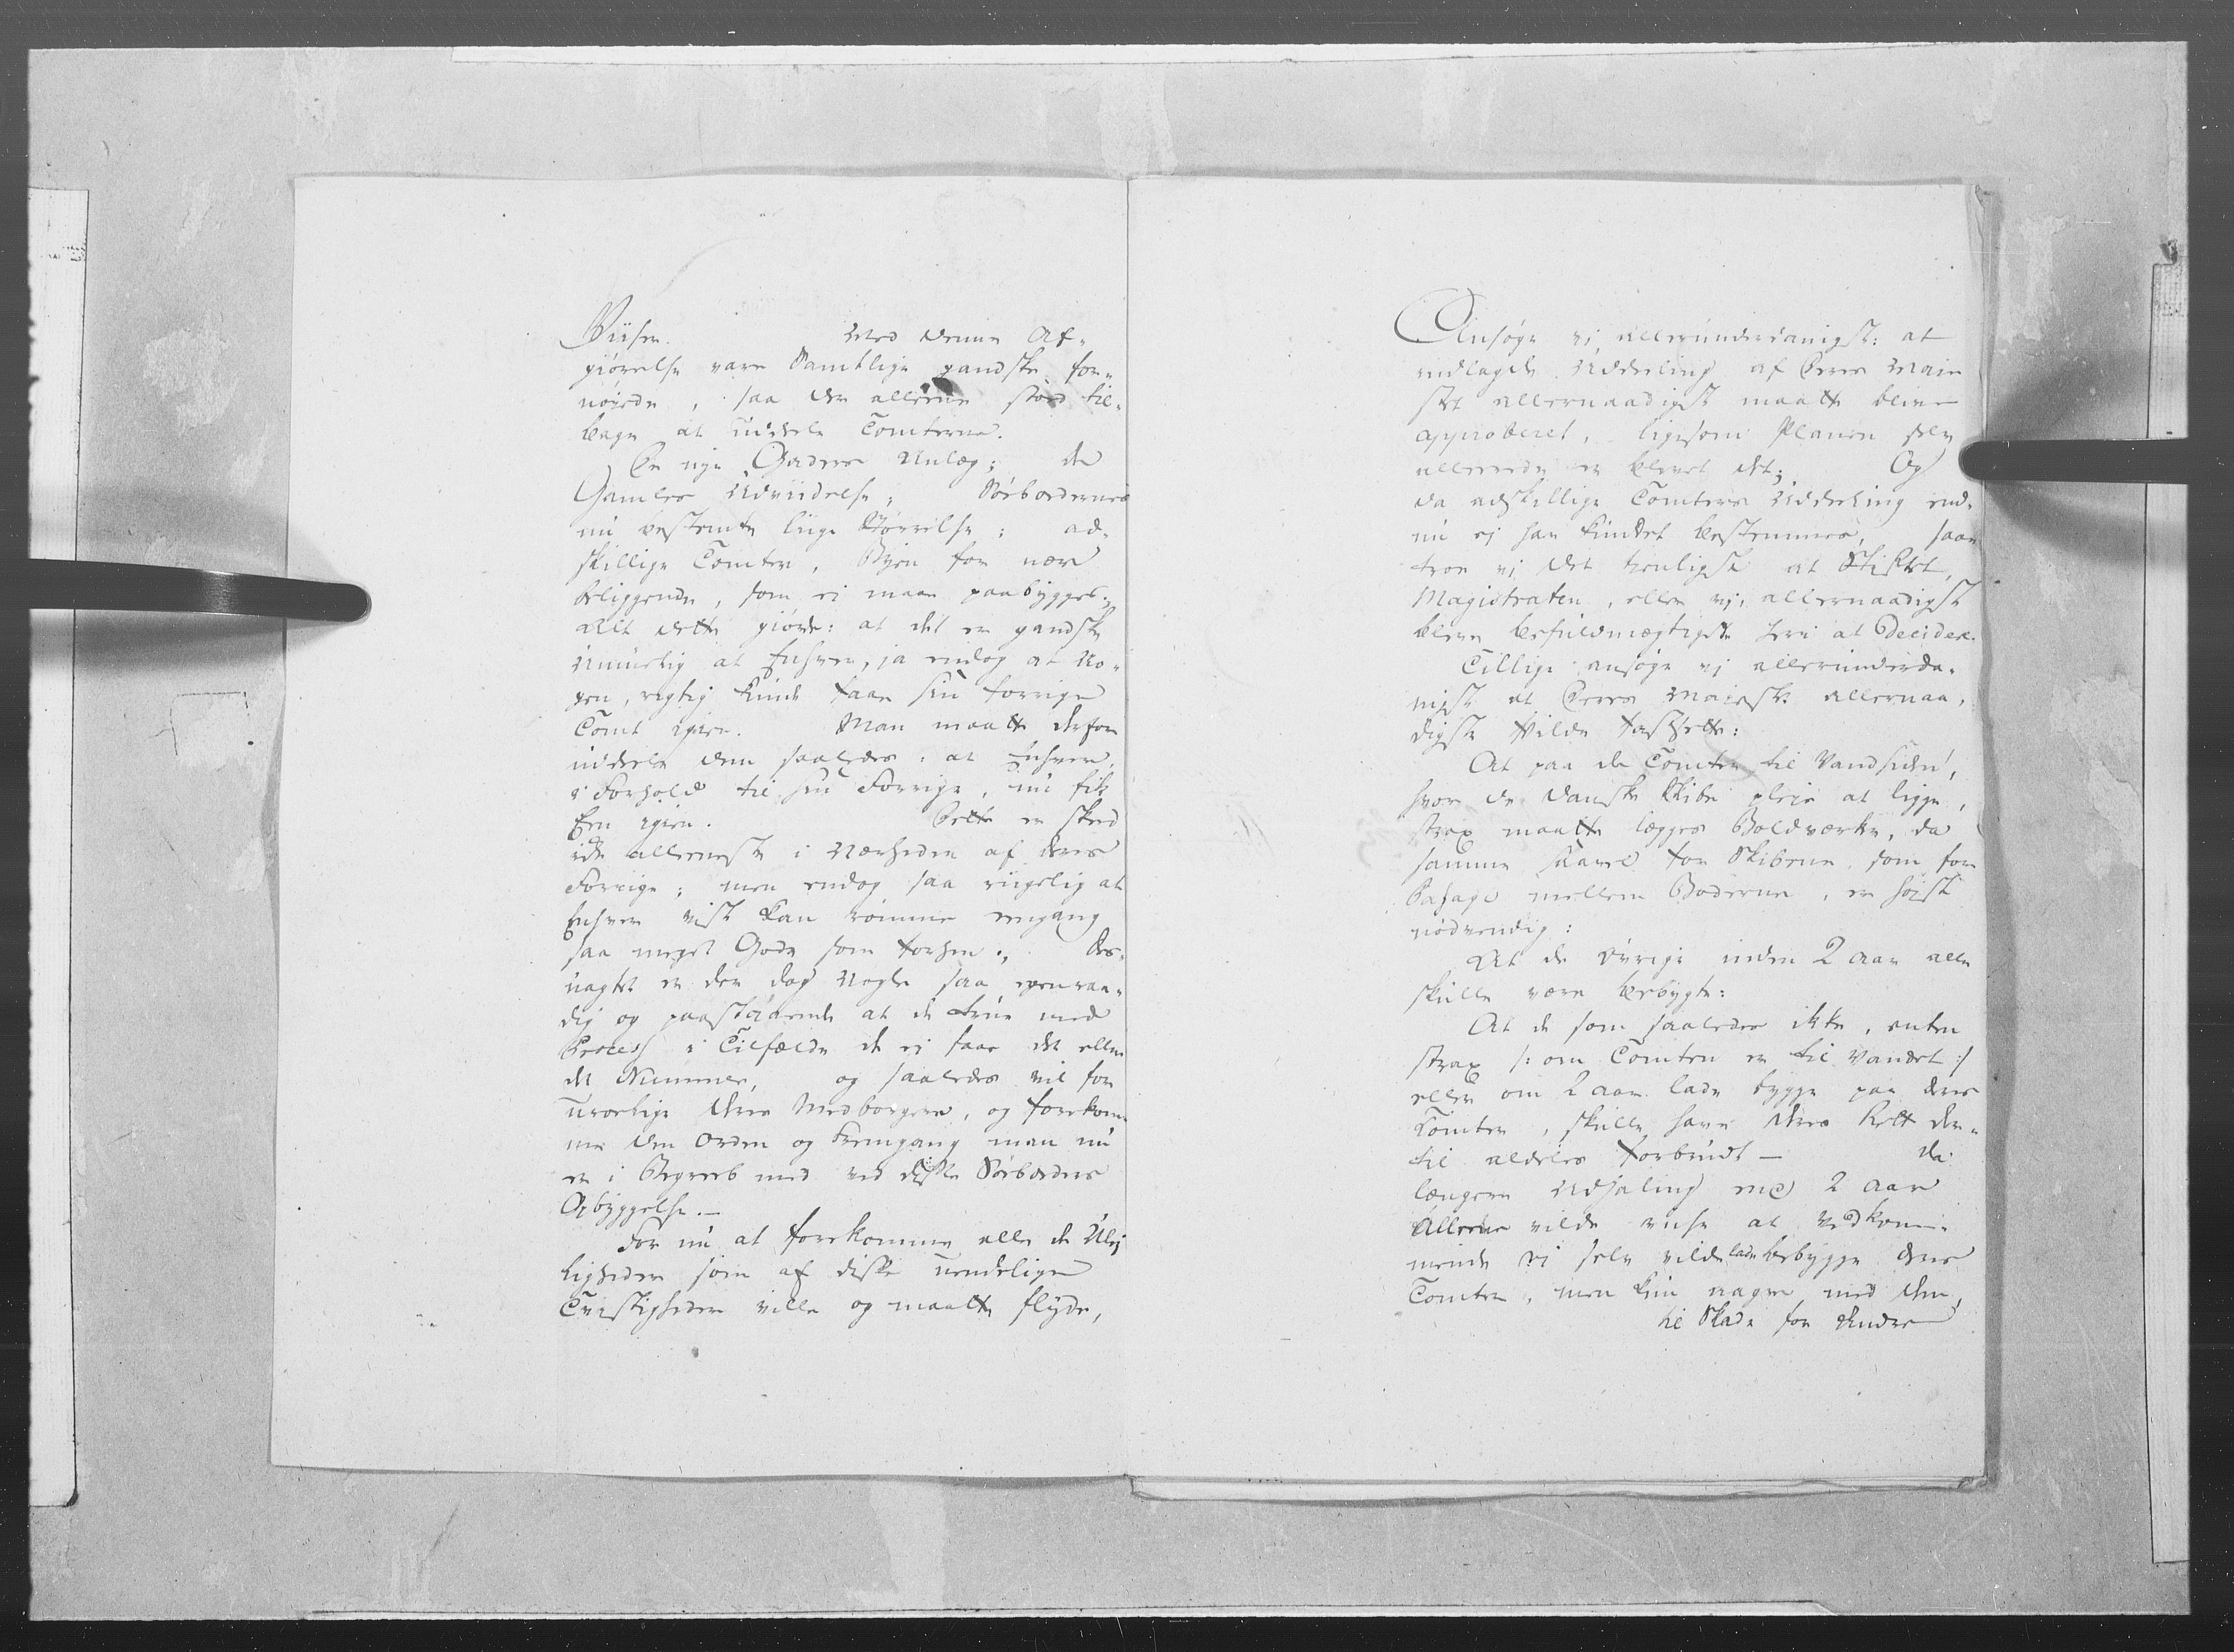 Viiser. Med denne Af-
giörelse vare Samtlige gandske for-
nöyede, saa der alleene stod til-
bage at uddele Tomterne.
De nye Gaders Anlæg; de
Gamles Udviidelse; Söebodernes
nu bestemte liige Störrelse; ad-
skillige Tomter, Byen for nær
beliggende, som ei maae paabygges;
alt dette giorde: at det er gandske
umuelig at Enhver, ja endog at No-
gen, rigtig kunde faae sin forrige
Tomt igien. Man maatte derfor
uddele dem saaledes: at Enhver,
i Forhold til sin Forrige, nu fik
Een igien. Dette er skeed
ikke alleneste i Nærheden af deres
Forrige; men endog saa riigelig at
Enhver vist kan römme engang
saa meget Gods som forhen; Des-
uagtet er der dog Nogle saa egenraa-
dig og paastaaende at de true med
Process i Tilfælde de ej faae det eller
det Nummer, og saaledes vil for
urolige deres Medborgere, og forekom-
me den Orden og Fremgang man nu
er i Begreeb med ved disse Söeboders
Opbyggelse.—
For nu at forekomme alle de Ulej
ligheder som af disse uendelige
Tvistigheder ville og maatte flyde,
Ansöge vi allerunderdanigst: at
indlagde Uddeeling af Deres Maje
stet allernaadigst maatte blive
approberet, ligesom Planen selv
allerede er blevet det; Og
da adskillige Tomters Uddeeling end-
nu ej har kundet bestemmes, saa
troe vi det tienligst at Stiftet,
Magistraten, eller vi, allernaadigst
bliver befuldmægtiget heri at decidere.
Tillige ansöge vi allerunderda-
nigst at Deres Majestæt allernaa-
digst vilde fastsette:
At paa de Tomter til Vandsiden,
hvor de danske Skibe pleje at ligge,
strax maatte lægges Boldværke, da
samme saavel for Skibene som for
Pasage mellem Boderne, er höist
nödvendig:
At de övrige inden 2 Aar alle
skulle være bebygte:
At de som saaledes ikke, enten
strax /: om Tomten er til Vandet :/
eller om 2 aar lade bygge paa deres
Tomter, skulle have deres Rett der-
til aldeles forbrudt— da
længere Udhaling end 2 Aar
Alleene vilde viise at Vedkom-
mende ej selv vilde lade bebygge deres
Tomter, men kun aagre med dem,
til Skade for Andre